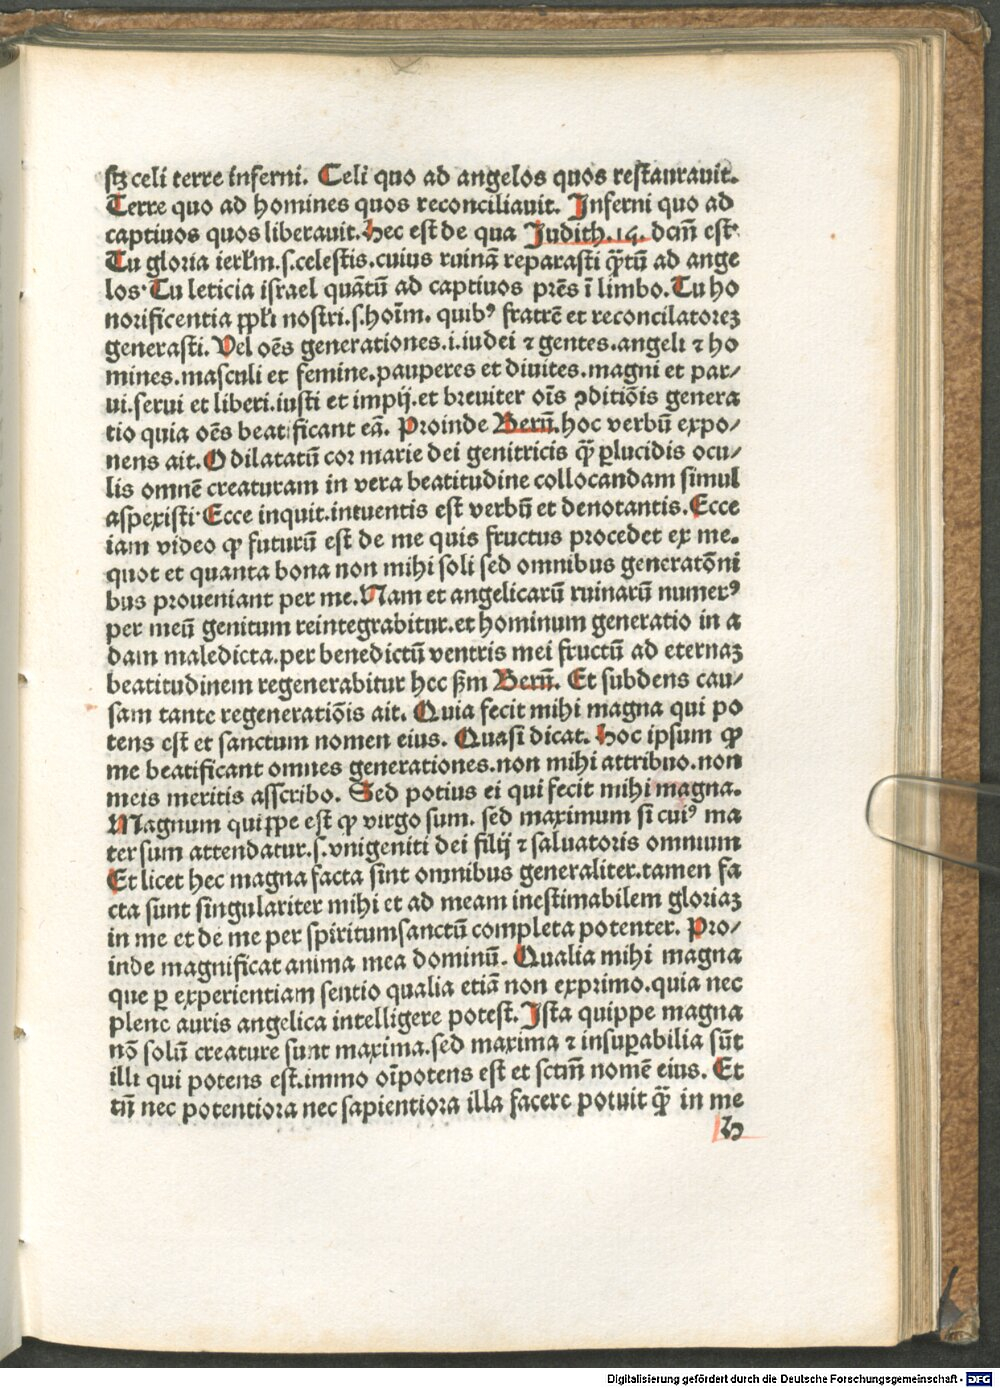 ſtꝫ celi terre inferni. Celi quo ad angelos quos reſtauravit.
Terre quo ad homines quos reconciliauit. Inferni quo ad
captiuos quos liberauit. Hec eſt de qua Judith .14. dcm̄ eſt·
Tu gloria ierłm .ſ. celeſtis. cuius ruinā reparaſti q̄ꝫtū ad ange
los· Tu leticia iſrael quātū ad captiuos prēs ī limbo. Tu ho
norificentia ꝑpłi noſtri .ſ. hoīm. quibꝰ fratrē et reconcilatoreꝫ
generaſti. Vel oēs generationes .i. iudei ⁊ gentes. angeli ⁊ ho
mines. maſculi et femine. pauperes et diuites. magni et par/
ui. ſerui et liberi. iuſti et impij. et breuiter oīs ꝯditiōis genera
tio quia oēs beatificant eā. Proinde Berñ. hoc verbū expo/
nens ait. O dilatatū cor marie dei genitricis q̄ ꝑlucidis ocu/
lis omnē creaturam in vera beatitudine collocandam ſimul
aſpexiſti· Ecce inquit. intuentis eſt verbū et denotantis. Ecce
iam video ꝙ futurū eſt de me quis fructus procedet ex me.
quot et quanta bona non mihi ſoli ſed omnibus generatōni
bus proueniant per me. Nam et angelicarū ruinarū numerꝰ
per meū genitum reintegrabitur. et hominum generatio in a
dam maledicta. per benedictū ventris mei fructū ad eternaꝫ
beatitudinem regenerabitur hec ẜm Berñ. Et ſubdens cau/
ſam tante regeneratiōis ait. Quia fecit mihi magna qui po
tens eſt et ſanctum nomen eius. Quaſi dicat. Hoc ipſum ꝙ
me beatificant omnes generationes. non mihi attribuo. non
meis meritis aſſcribo. Sed potius ei qui fecit mihi magna.
Magnum quippe eſt ꝙ virgo ſum. ſed maximum ſi cuiꝰ ma
ter ſum attendatur .ſ. vnigeniti dei filij ⁊ ſaluatoris omnium
Et licet hec magna facta ſint omnibus generaliter. tamen fa
cta ſunt ſingulariter mihi et ad meam ineſtimabilem gloriaꝫ
in me et de me per ſpiritumſanctū completa potenter. Pro/
inde magnificat anima mea dominū. Qualia mihi magna
que ꝑ experientiam ſentio qualia etiā non exprimo. quia nec
plene auris angelica intelligere poteſt. Iſta quippe magna
nō ſolū creature ſunt maxima. ſed maxima ⁊ inſuꝑabilia ſūt
illi qui potens eſt. immo oīpotens eſt et ſctm̄ nomē eius. Et
tn̄ nec potentiora nec ſapientiora illa facere potuit q̄ꝫ in me
h
Digitalisierung gefördert durch die Deutsche Forschungsgemeinschaft - DFG